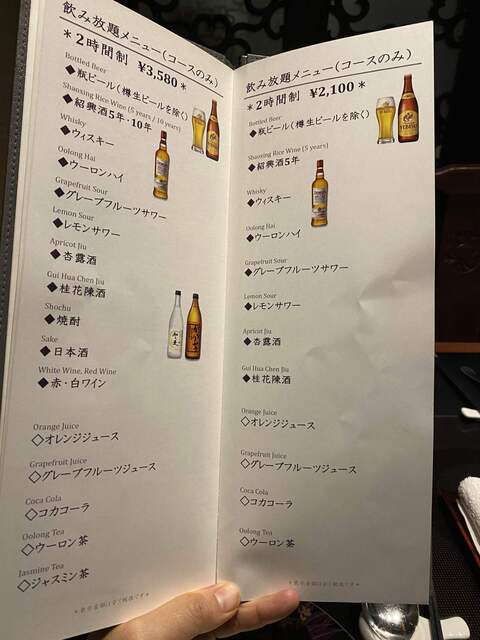 飲み放題メニュー(コースのみ)
*2時間制 ¥3,580*
Bottled Beer
◆瓶ビール(樽生ビールを除く)
Shaoxing Rice Wine (5 years / 10 years)
◆紹興酒5年・10年
Whisky
◆ウィスキー
Oolong Hai
◆ウーロンハイ
Grapefruit Sour
◆グレープフルーツサワー
Lemon Sour
◆レモンサワー
Apricot Jiu
◆杏露酒
Gui Hua Chen Jiu
◆桂花陳酒
Shochu
◆焼酎
Sake
◆日本酒
White Wine, Red Wine
◆赤・白ワイン
Orange Juice
◇オレンジジュース
Grapefruit Juice
◇グレープフルーツジュース
Coca Cola
◇コカコーラ
Oolong Tea
◇ウーロン茶
Jasmine Tea
◇ジャスミン茶
*表示金額は全て税抜です*
飲み放題メニュー(コースのみ)
*2時間制 ¥2,100*
Bottled Beer
◆瓶ビール(樽生ビールを除く)
Shaoxing Rice Wine (5 years)
◆紹興酒5年
Whisky
◆ウィスキー
Oolong Hai
◆ウーロンハイ
Grapefruit Sour
◆グレープフルーツサワー
Lemon Sour
◆レモンサワー
Apricot Jiu
◆杏露酒
Gui Hua Chen Jiu
◆桂花陳酒
Orange Juice
◇オレンジジュース
Grapefruit Juice
◇グレープフルーツジュース
Coca Cola
◇コカコーラ
Oolong Tea
◇ウーロン茶
*表示金額は全て税抜です*